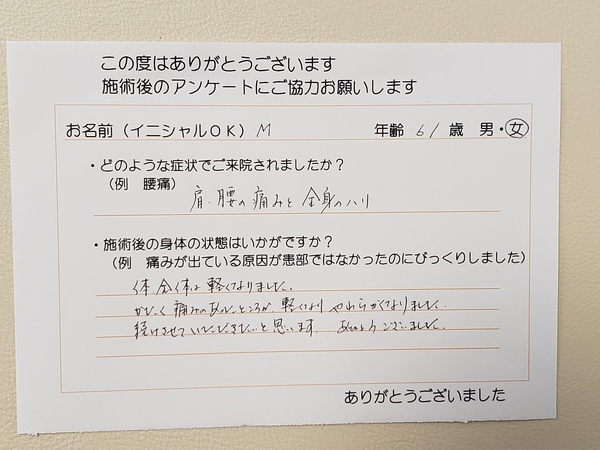 この度はありがとうございます
施術後のアンケートにご協力お願いします
お名前（イニシャルOK） M 年齢 61 歳 男・女
・どのような症状でご来院されましたか？
（例 腰痛）
肩、腰の痛みと全身のハリ
・施術後の身体の状態はいかがですか？
（例 痛みが出ている原因が患部ではなかったのにびっくりしました）
体全体は軽くなりました。
かたく痛みのあったところが、軽くなり やわらかくなりました。
続けさせていただきたいと思います。 ありがとうございました。
ありがとうございました